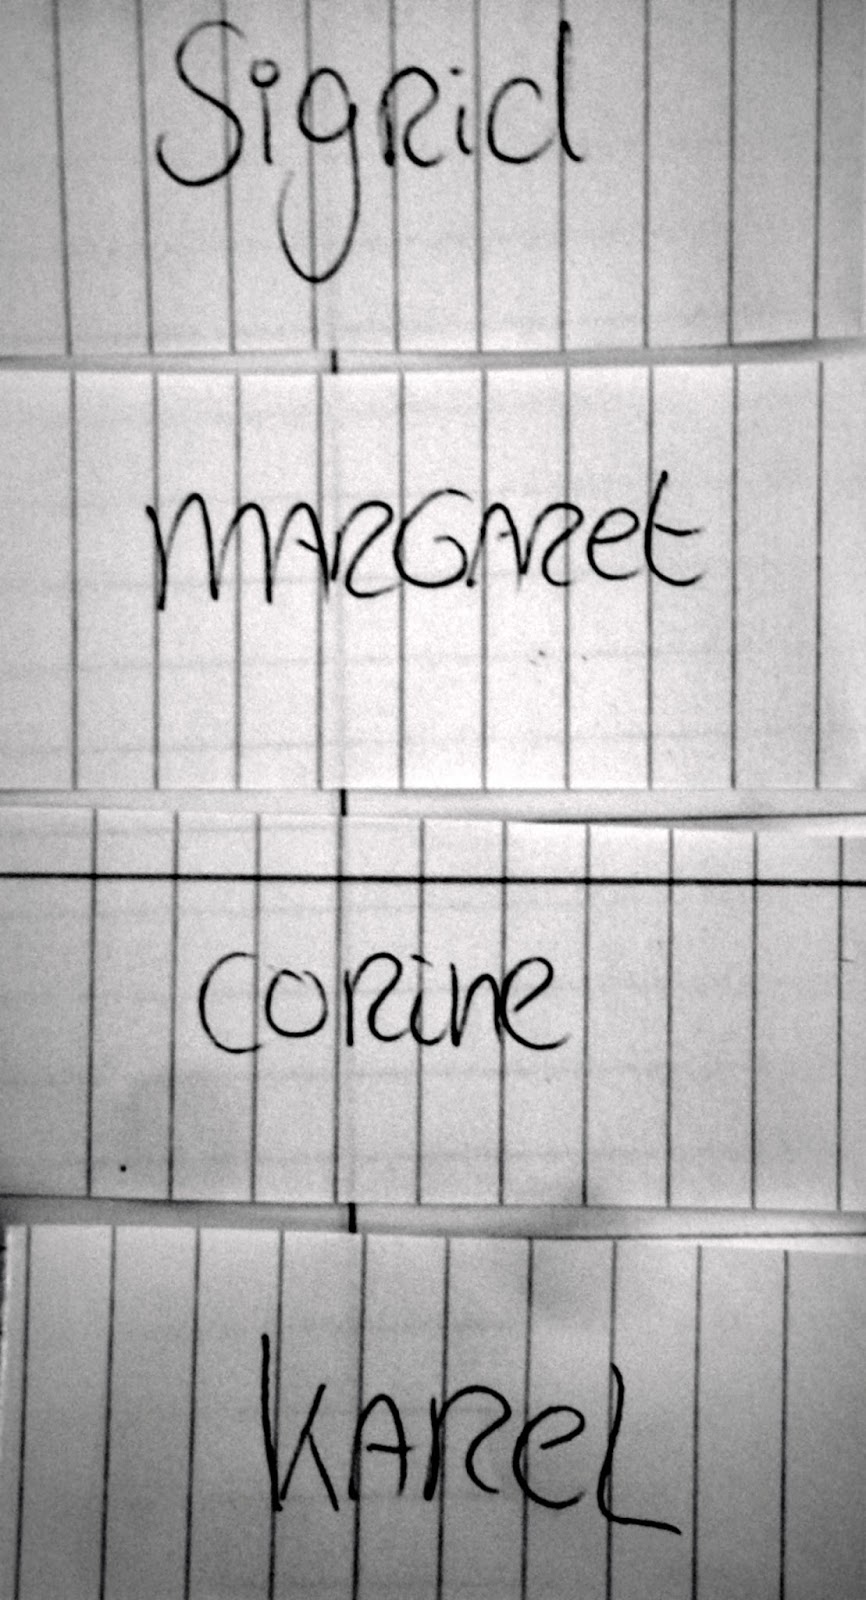 Sigrid
MARGARet
CORine
KAReL